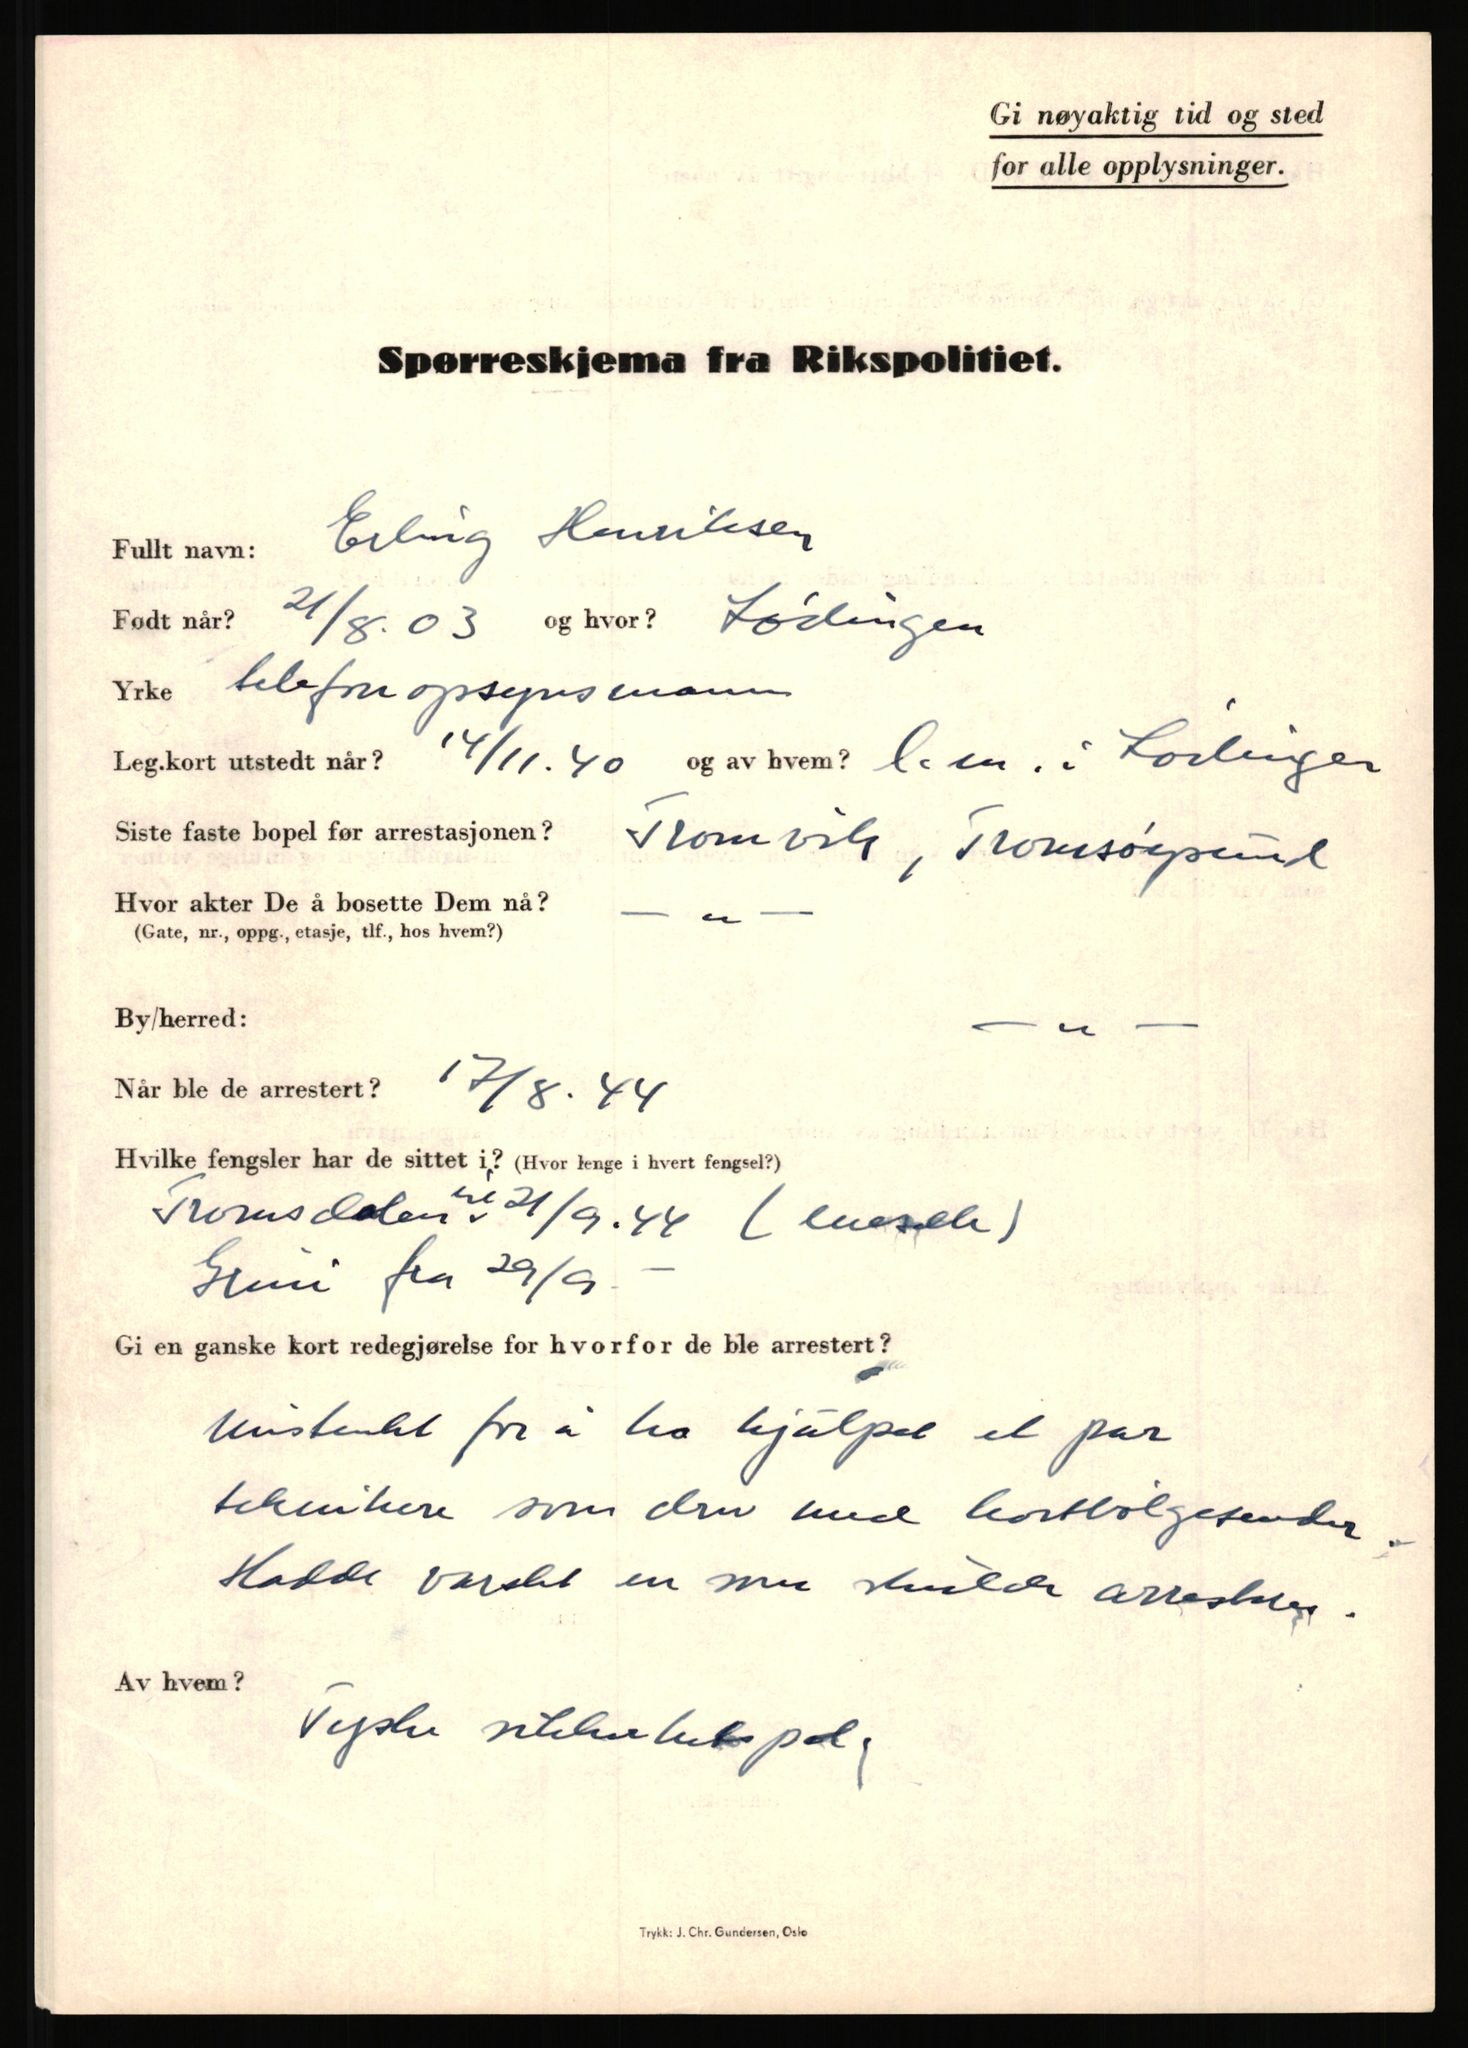 Gi nøyaktig tid og sted
for alle opplysninger.
Spørreskjema fra Rikspolitiet.
Fullt navn: Erling Henriksen
Født når? 21/8.03 og hvor? Lødingen
Yrke telefonopsynsmann
Leg.kort utstedt når? 14/11.40 og av hvem? l.m. i Lødingen
Siste faste bopel før arrestasjonen? Tromvik, Tromsøysund
Hvor akter De å bosette Dem nå? — " —
(Gate, nr., oppg., etasje, tlf., hos hvem?)
By/herred: — " —
Når ble de arrestert? 17/8.44
Hvilke fengsler har de sittet i? (Hvor lenge i hvert fengsel?)
Tromsdalen til 21/9.44 (enecelle)
Grini fra 29/9 –
Gi en ganske kort redegjørelse for hvorfor de ble arrestert?
Mistenkt for å ha hjulpet et par
teknikere som drev med kortbølgesender.
Hadde varslet en som skulde arresteres.
Av hvem?
Tyske sikkerhetspoli
Trykk: J. Chr. Gundersen, Oslo